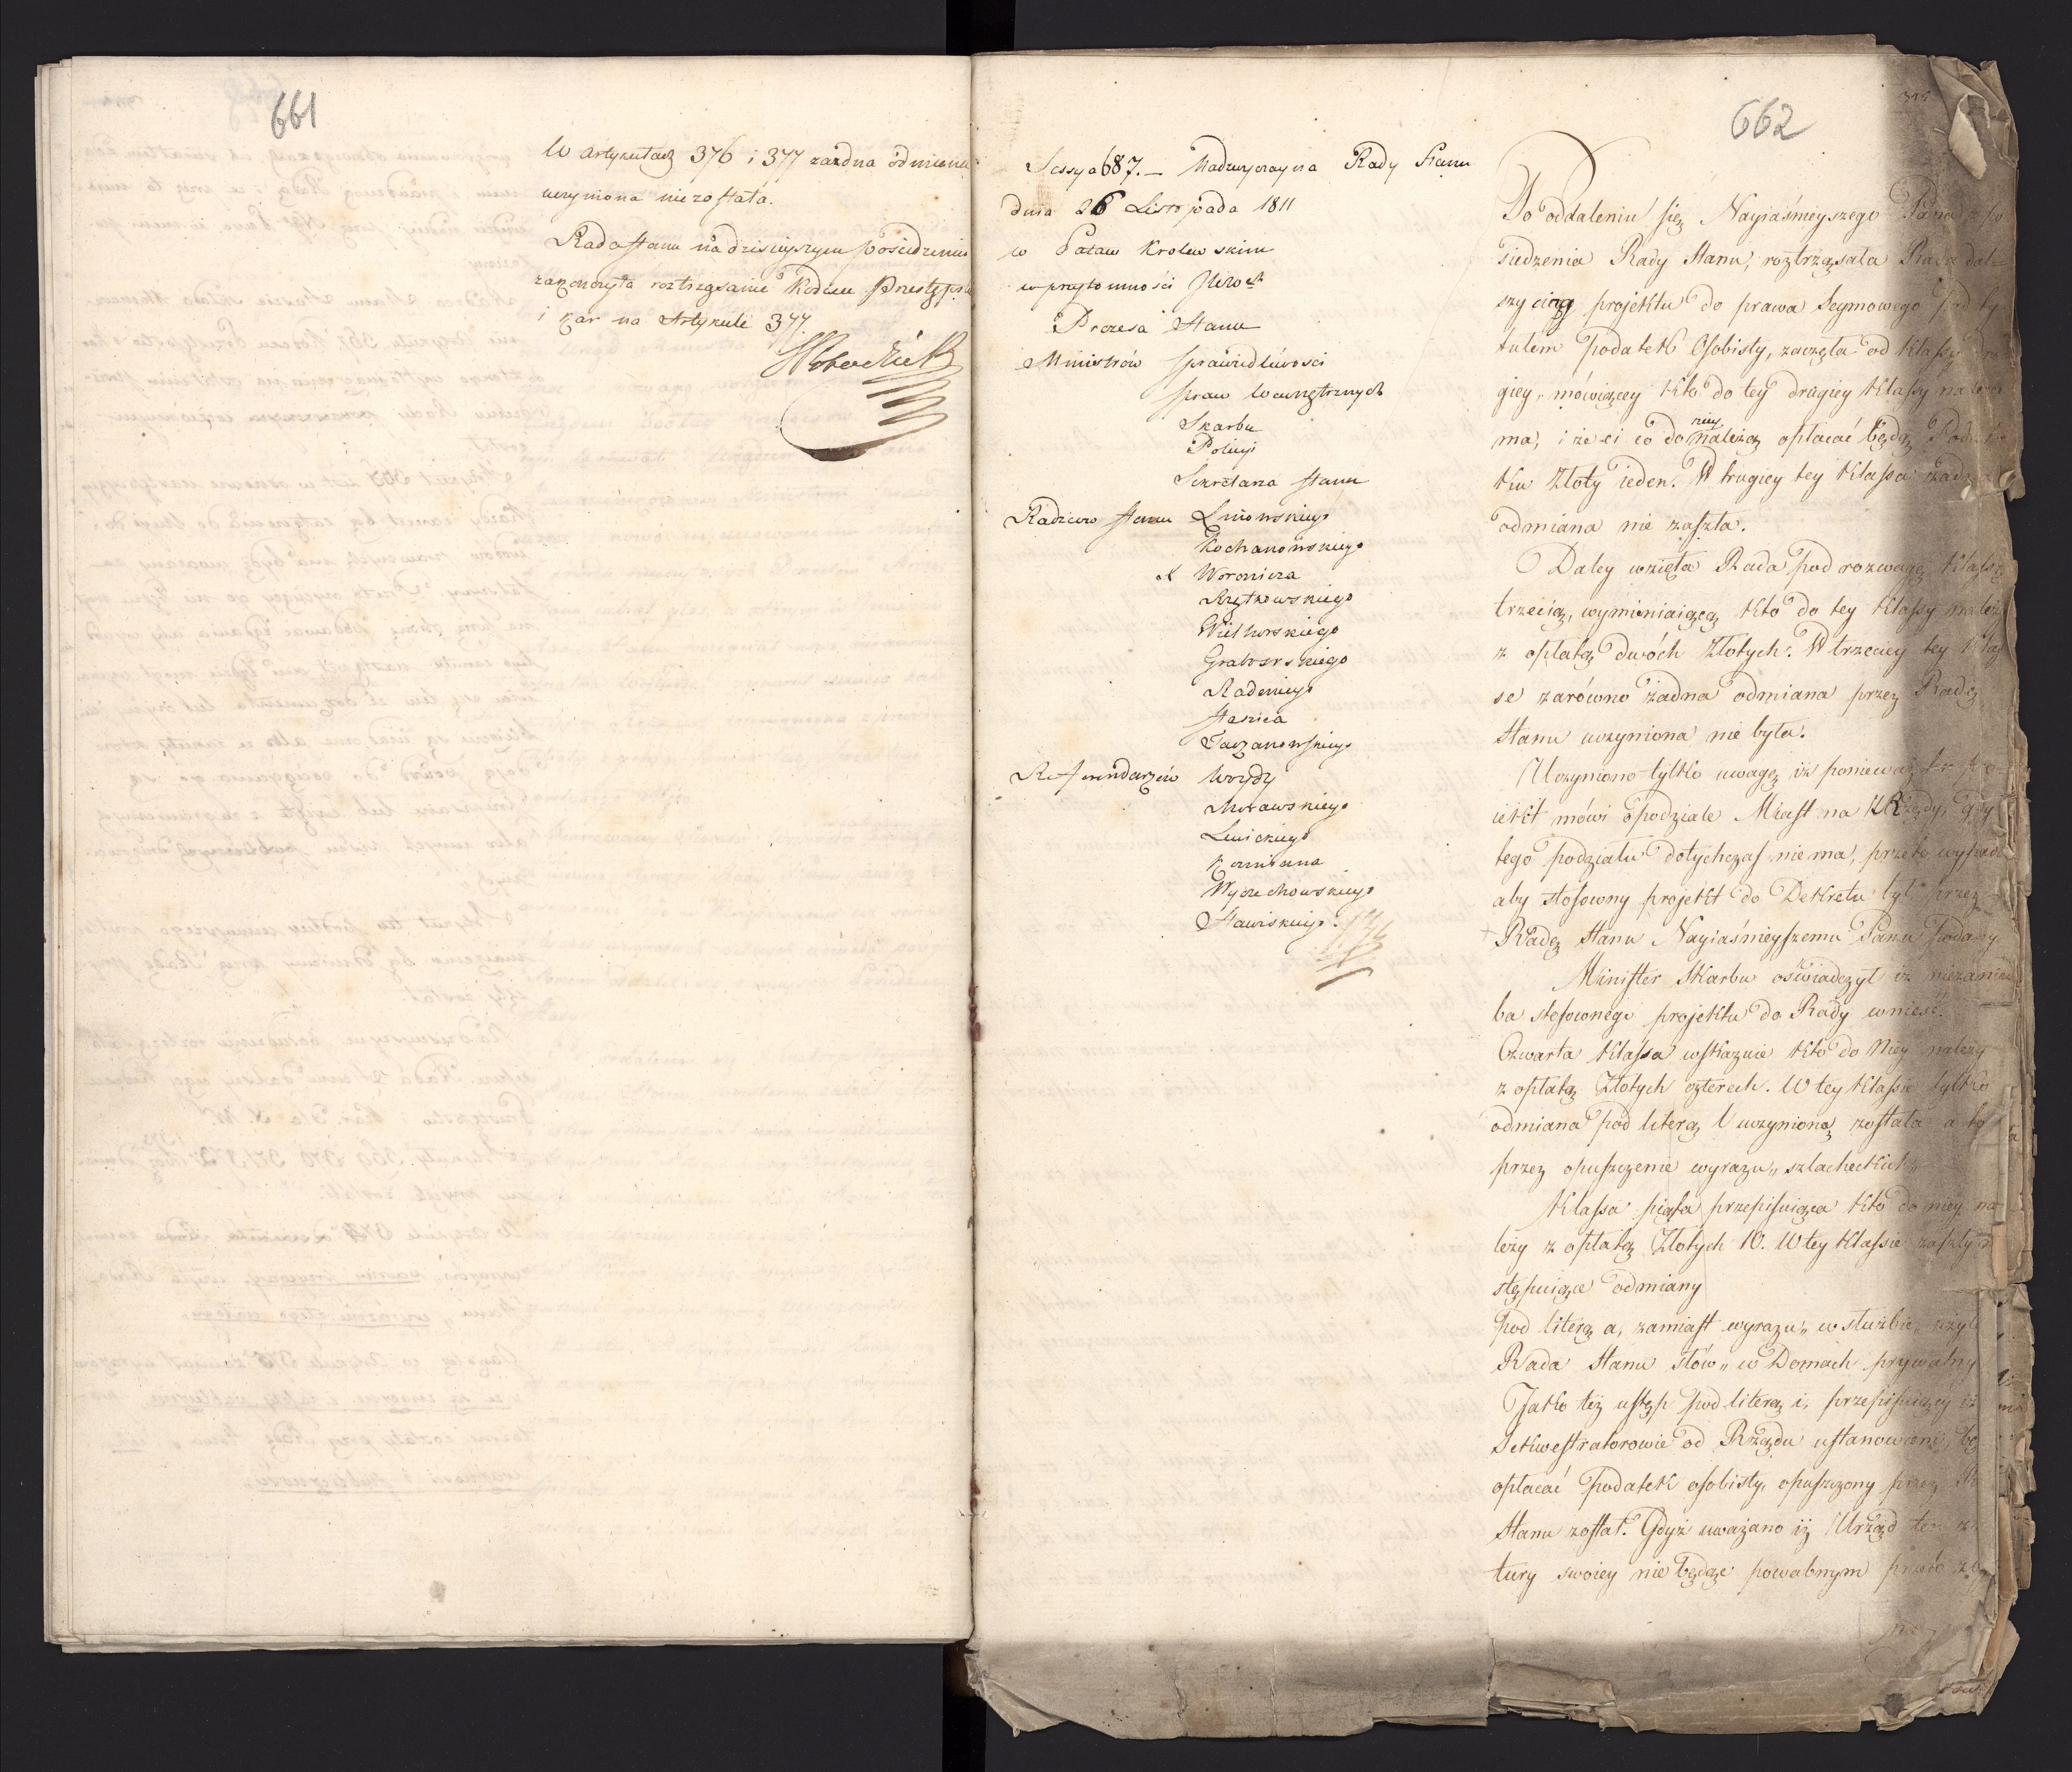 661
W Artykułach 376 i 377 żadna odmiana
uczyniona nie została.
Rada Stanu na dzisieyszym posiedzeniu
zakończyła roztrząsanie Kodexu Przestępstw
i kar na Artykule 377
662
Sessya 687. — Nadzwyczayna Rady Stanu
dnia 26 Listopada 1811
w Pałacu Krolewskim
w przytomności JW
Prezesa Stanu
Ministrów Sprawiedliwości
Spraw Wewnętrznych
Skarbu
Policyi
Sekretarza Stanu
Radzców Stanu Linowskiego
Kochanowskiego
X Woronicza
Wielhorskiego
Grabowskiego
Stasica
Referendarzów
Morawskiego
Lewickiego
Koźmiana
Wyczechowskiego
Po oddaleniu się Nayiaśnieyszego Pana z po
siedzenia Rady Stanu, roztrząsała Rada dal
szy ciąg projektu do prawa Seymowego pod ty
tułem Podatek Osobisty, zaczęła od klassy dru
giey, mówiącey kto do tey drugiey klassy należeć
ma, i że ci co do niey należą opłacać będą Podat
ku Złoty ieden. W drugiey tey klassie żadna
odmiana nie zaszła.
Daley wzięła Rada pod rozwagę klassę
trzecią, wymieniaiącą kto do tey klassy należy
z opłatą dwóch Złotych. W trzeciey tey klas
se zarówno żadna odmiana przez Radę
Stanu uczyniona nie była.
Uczyniono tylko uwagę iż ponieważ Pro
iekt mówi o podziale Miast na Rzędy, gdy
tego podziału dotychczas nie ma, przeto wypada
aby stosowny projekt do Dekretu był przez
Radę Stanu Nayiaśnieyszemu Panu podany
Minister Skarbu oświadczył iż niezanied
ba stosownego projektu do Rady wnieść.
Czwarta klassa wskazuie kto do Niey należy
z opłatą Złotych czterech. W tey klassie tylko
odmiana pod literą U uczyniona została a to
przez opuszczenie wyrazu „szlacheckich"
Klassa piąta przepisuiąca kto do niey na
leży z opłatą Złotych 10. W tey klassie zaszły na
stępuiące odmiany
Pod literą a, zamiast wyrazu „w służbie" użyła
Rada Stanu słów „w Domach prywatny
Jako też ustęp pod literą i, przepisuiący iż
Sekwestratorowie od Rządu ustanowieni, bę
opłacać Podatek osobisty, opuszczony przez Ra
Stanu został. Gdyż uważano iż Urząd ten z na
tury swoiey nie będąc powabnym